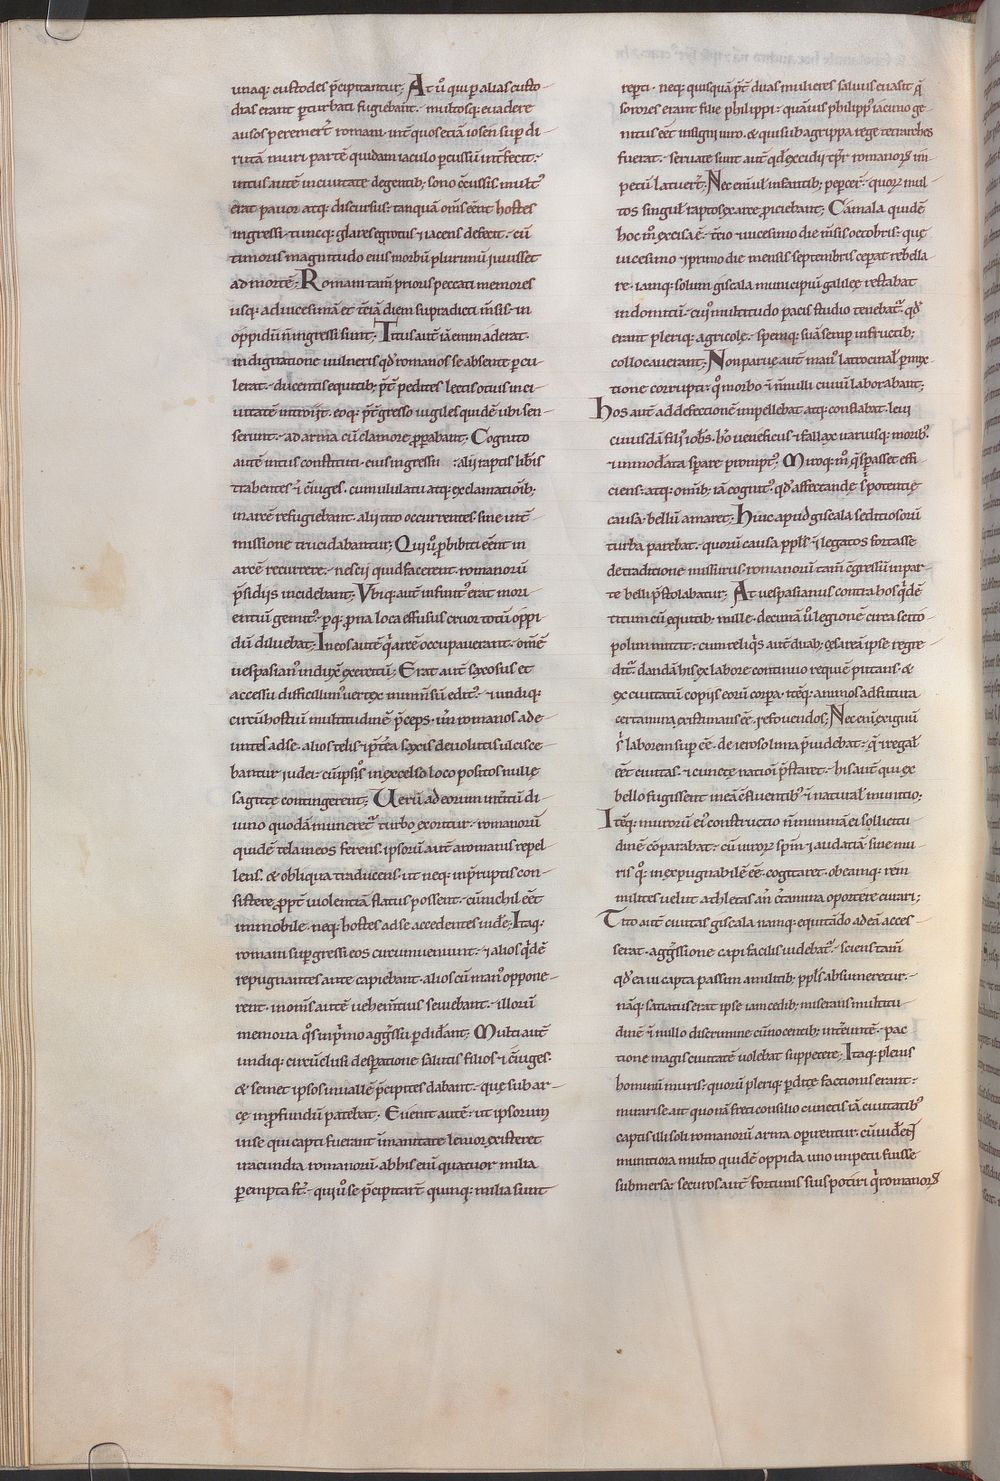 unaq; custodes p̄cipitantur; At u̓o qui p̱ alias custo-
dias erant p̱turbati fugiebant. multosq; euadere
ausos peremer̄t romani. int̄ quos etiā iosen sup̱ di-
rutā muri partē quidam iaculo percussū int̄fecit.
intus autē in ciuitate degentib; sono c̄cussis mult᷒
erat pauor atq; discursus. tanquā om̄s eēnt hostes
ingressi. tuncq; glares egrotus ⁊ iacens defecit. cū
timoris magnitudo eius morbū plurimū iuuisset
ad mortē; Romani tam̄ prioris peccati memores
usq; ad uicesimā et t̄ciā diem supradicti m̄sis. in
oppidū n̄ ingressi sunt; Titus aut̄ iā enim aderat.
indignatione uulneris qd̓ romanos se absente p̱cu-
lerat. ducentis equitib; p̄t̄ pedites lectis ocius in ci-
uitatē introijt. eoq; p̄t̄gresso uigiles quidē ubi sen-
serunt. ad arma cū clamore p̱p̱abant; Cognito
autē intus constituti eius ingressu : alij raptis lib̄is
trahentes ⁊ c̄iuges. cum ululatu atq; exclamatiōib;
in arcē refugiebant. alij tito occurrentes. sine int̄-
missione trucidabantur; Qui u̓o p̱hibiti eēnt in
arcē recurrere. nescij quid facerent. romanorū
p̄sidijs incidebant; Vbiq; aut̄ infinit᷒ erat mori-
entiū gemit᷒. p̱q; p̱na loca effusus cruor totū oppi-
dū diluebat; In eos autē q̓ arcē occupauerant. om̄ē
uespasian᷒ induxit exercitū; Erat aut̄ saxosus et
accessu difficillim᷒ uertex. in imm̄sū edit᷒. ⁊ undiq;
circū hostiū multitudinē p̄ceps. un̄ romanos ade-
untes ad se. alios telis ⁊ p̄t̄ea saxis deuolutis ulcisce-
bantur iudei. cū ip̄sos in excelso loco positos nulle
sagitte contingerent; Uerū ad eorum int̄itū di-
uino quodā munere c̄t̄ turbo exoritur. romanorū
quidē tela in eos ferens. ipsorū autē a romanis repel-
lens. & obliqua traducens. ut neq; in p̄ruptis con-
sistere p̱pt̄ uiolentiā flatus possent. cū nichil eēt
immobile. neq; hostes ad se accedentes uid̓e; Itaq;
romani sup̱gressi eos circumueniunt. ⁊ alios q̓dē
repugnantes ante capiebant. alios cū man᷒ oppone-
rent. in om̄s autē uehem̄tius seuiebant. illorū
memoria q̓s in p̓mo agg̓ssu p̱did̓ant; Multi autē
undiq; circūclusi desp̱atione salutis filios ⁊ c̄iuges.
& semet ipsos in uallē p̄cipites dabant. que sub ar-
ce in p̱fundū patebat. Euenit autē. ut ipsorum
in se qui capti fuerant īmanitate leuior existeret
iracundia romanorū. ab his eni quatuor milia
p̱empta s̄t. qui u̓o se p̄cipitar̄t quinq; milia sunt
rep̱ti. neq; quisquā p̄t̄ duas mulieres saluus euasit. q̄
sorores erant filie philippi. quāuis philipp᷒ iacimo ge-
nitus eēt insigni uiro. & qui sub agrippa rege tetrarches
fuerat. seruate sunt aut̄ qd̓ excidij tp̄r romanorꝝ im-
petū latuer̄t; Nec eni ul̓ infantib; peꝑcer̄t. quorꝝ mul-
tos singul̓ raptos ex arce p̱iciebant; Camala quidē
hoc m̊ excisa ē. t̄cio ⁊ uicesimo die m̄sis octobris. que
uicesimo ⁊ primo die mensis septembris cep̱at rebella-
re. iamq; solum giscala municipiū galilee restabat
indomitū. cui᷒ multitudo pacis studio tenebat᷑. qd̓
erant pleriq; agricole. spemq; suā semp̱ in fructib;
collocauerant; Non parue aut̄ man᷒ latrocinal̓ p̱mix-
tione corrupti. q̊ morbo ⁊ n̄nulli ciuiū laborabant;
Hos aut̄ ad defectionē impellebat. atq; conflabat. leui
cuiusdā fili᷒ ioh̄s. h̊o ueneficus ⁊ fallax uariusq; morib᷒.
⁊ immod̓ata sp̱are prompt᷒. Miroq; m̊ q̓ sp̱asset effi-
ciens. atq; omīb; iā cognit᷒. qd̓ affectande s̓ potentie
causa bellū amaret; Huic apud giscala seditiosorū
turba parebat. quorū causa pp̄ls ⁊ legatos fortasse
de traditione missurus. romanorū tam̄ c̄gressū in par-
te belli p̄stolabatur; At uespasianus contra hos q̓dē
titum cū equitib; mille. decimā u̓o legionē circa scito-
polim mittit. cum reliq̓s aut̄ duab; cesareā ipse regre-
dit᷑. dandā his ex labore continuo requiē putans. &
ex ciuitatū copijs eorū corp̱a. it̄q; animos ad futura
certamina existimans eē refouendos; Nec eni exiguū
s̓ laborem sup̱eē. de ierosolima p̄uidebat. q̓ ⁊ regal̓
eēt ciuitas. ⁊ cuncte nationi p̄staret. his aut̄ qui ex
bello fugissent in eā c̄fluentib᷒ ⁊ natural̓ munitio;
It̄q; murorū ei᷒ constructio n̄ minimā ei sollicitu-
dinē cōparabat. cū uirorꝝ sp̄m ⁊ audatiā sine mu-
ris q̊q; inexpugnabilē eē cogitaret. ob eamq; rem
milites uelut achletas an̄ c̄tamina oportere curari;
Tito aut̄ ciuitas giscala namq; equitādo ad eā acces-
serat. agg̓ssione capi facilis uidebat᷑. sciens tam̄
qd̓ ea ui capta passim a militib; pp̄ls absumeretur.
nāq; satiatus erat ipse iam cedib; miserans multitu-
dinē ⁊ nullo discrimine cū nocentib; int̓euntē. pac-
tione magis ciuitatē uolebat suppetere; Itaq; plenis
hominū muris. quorū pleriq; p̱dite factionis erant.
mirari se ait quonā freti consilio cunctis iā ciuitatib᷒
captis illi soli romanorū arma op̱irentur. cū uid̓ent
munitiora multo quidē oppida uno impetu fuisse
submersa. securos aut̄ fortunis suis potiri q̓ romanorꝝ